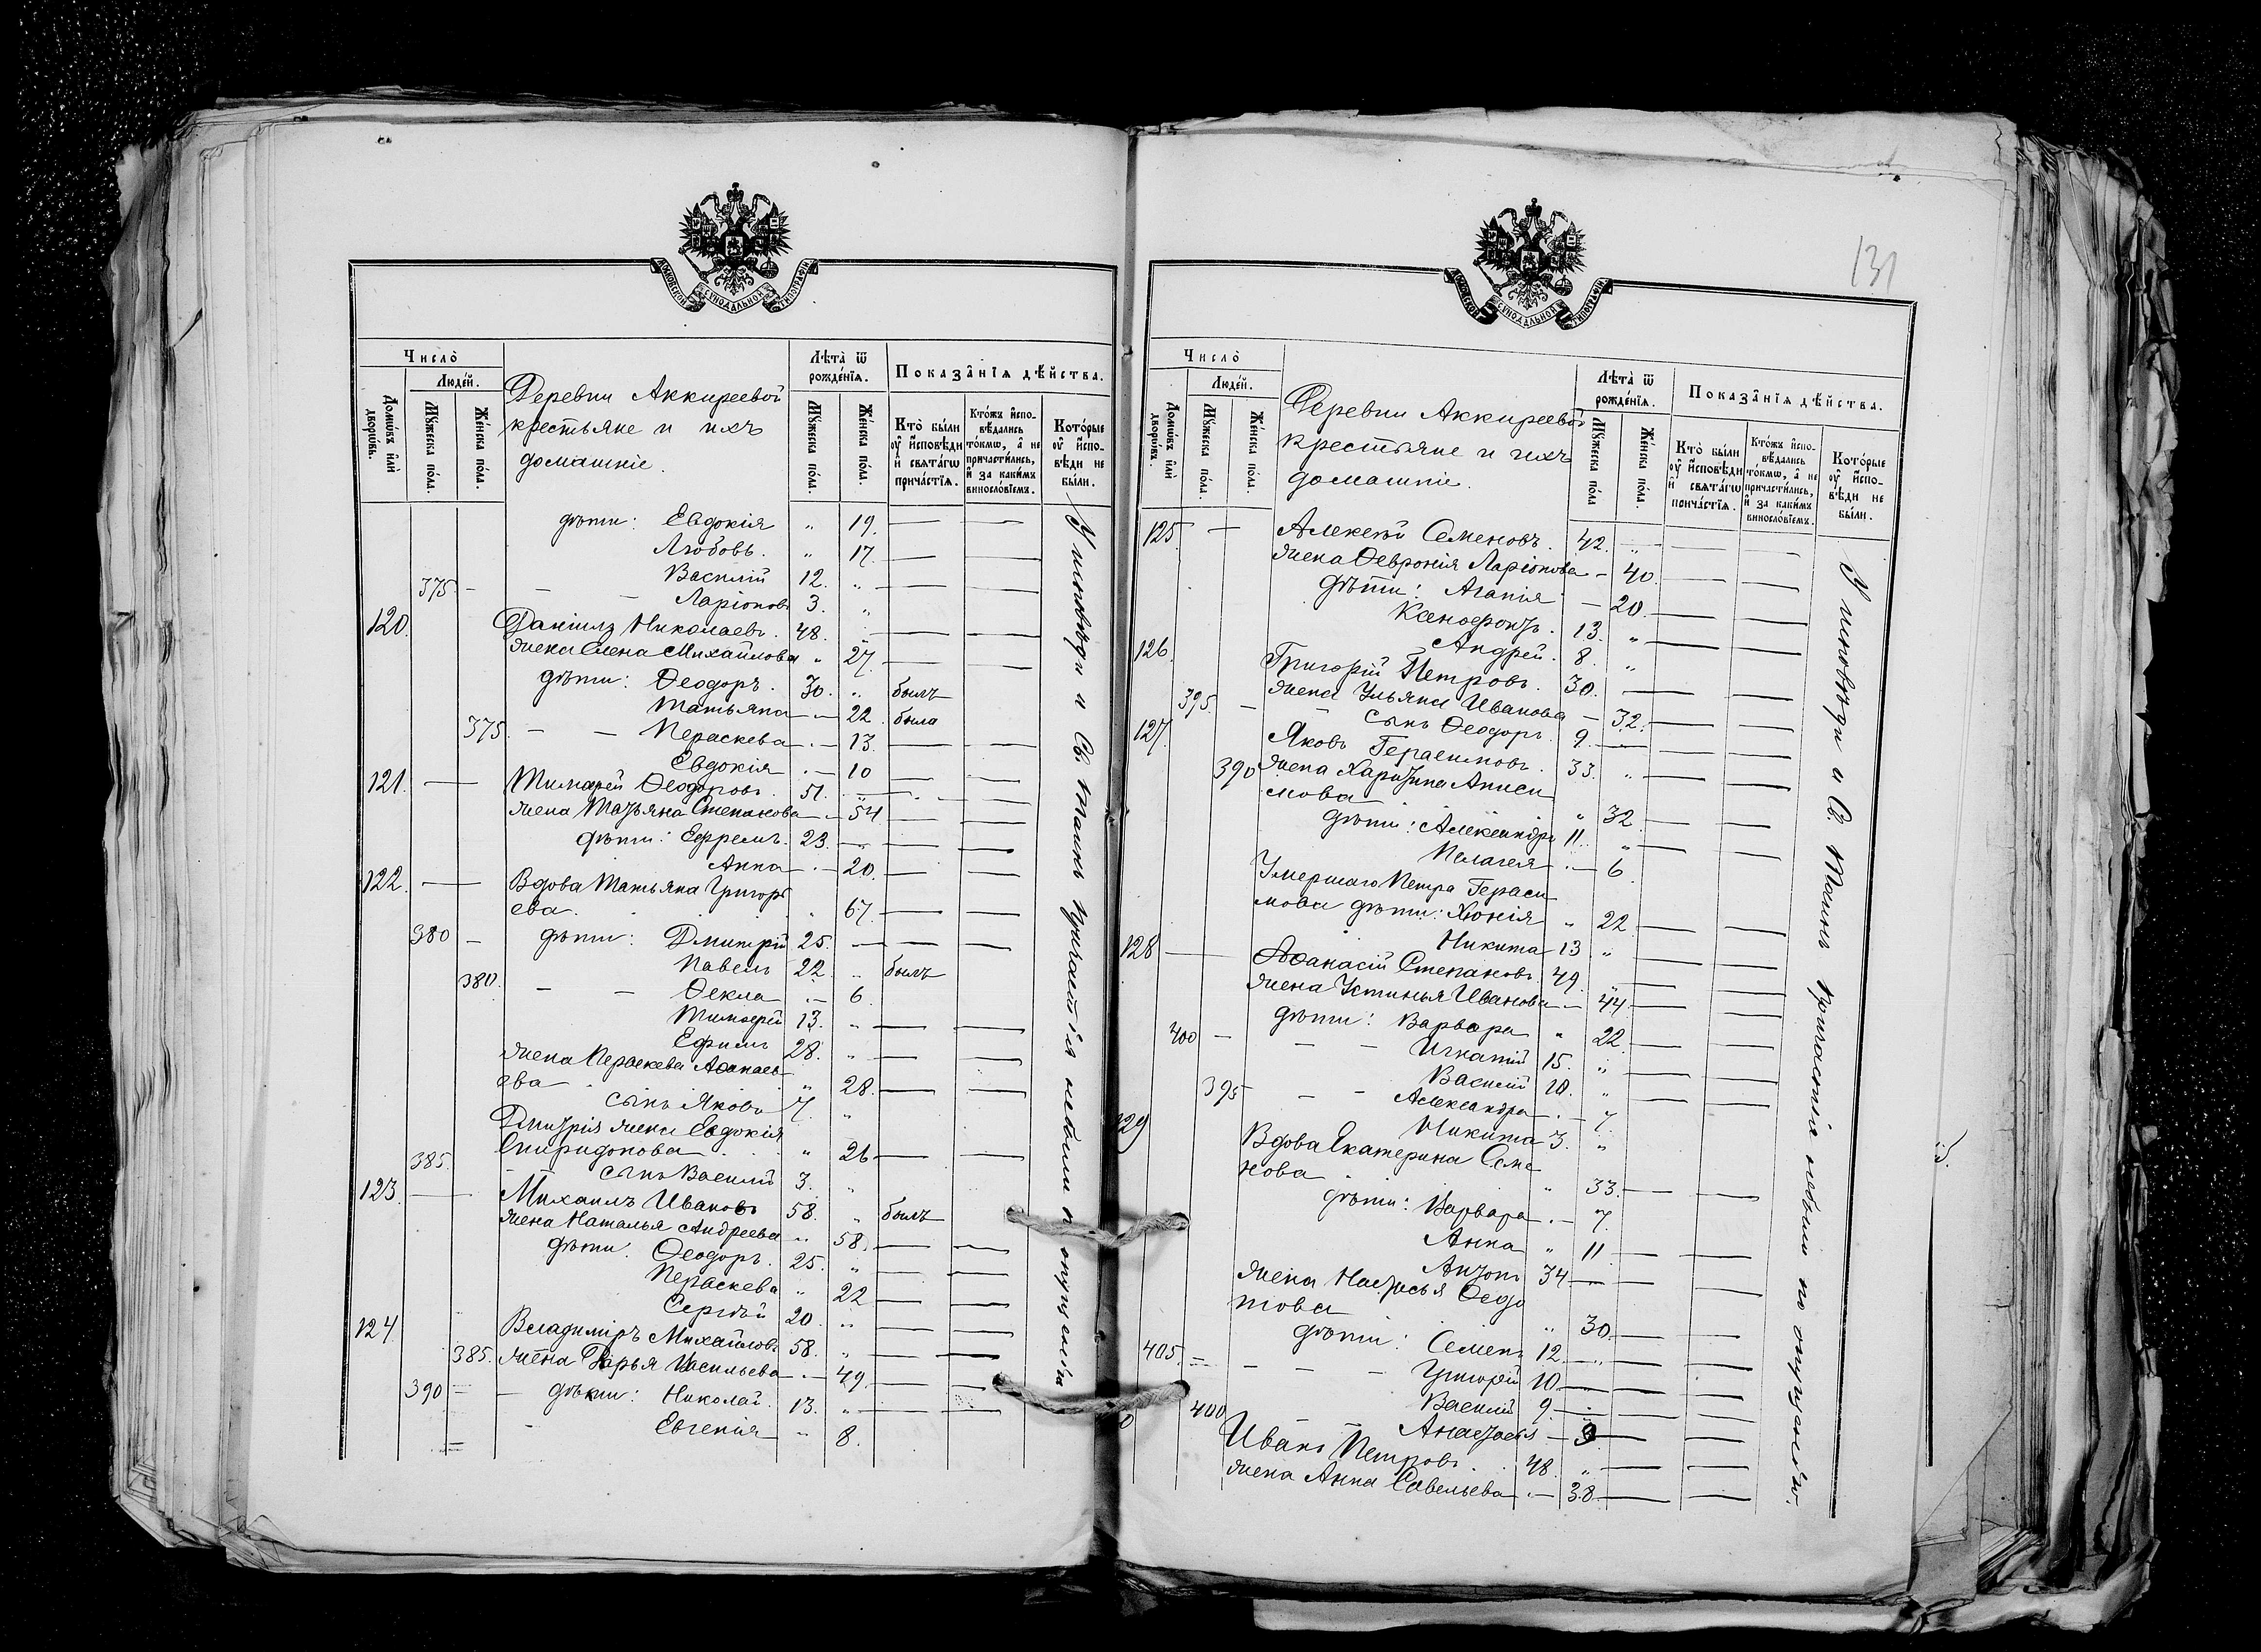 МОСКОВСКОЙ СѴНОДАЛЬНОЙ ТИПОГРАФІИ
Число̀
Людéй.
Домѡ́въ и҆лѝ дворѡ́въ.
Мꙋ́жеска по́ла.
Же́нска по́ла.
Деревни Аккиреевой
крестьяне и ихъ
домашніе.
Лѣта̀ ѿ рожде́нїѧ.
Мꙋ́жеска по́ла.
Же́нска по́ла.
Показа̑нїѧ дѣ́йства.
Кто̀ бы́ли оу҆ и҆сповѣ́ди и҆ свѧта́гѡ прича́стїѧ.
Кто́жъ и҆спо-вѣ́дались то́кмѡ, а҆ не причасти́лись, и҆ за каки́мъ винослóвїемъ.
Кото́рые оу҆ и҆спо-вѣ́ди не бы́ли.
дѣти: Евдокія " 19.
Любовь. " 17.
Василій 12. "
375 - - - Ларіонъ 3. "
120. Даніилъ Николаевъ. 48.
жена Елена Михайлова " 27.
дѣти: Ѳеодоръ. 30. " былъ
Татьяна - 22. была
375. - - Пераскева - 13.
Евдокія - 10
121. - Тимоѳей Ѳеодоровъ. 51.
жена Татьяна Степанова - 54
дѣти: Ефремъ. 23. -
Анна - 20.
122. - Вдова Татьяна Григорь
ева. " 67.
380 - дѣти: Дмитрій 25. -
Павелъ 22. " былъ
380. - - Ѳекла - 6.
Тимоѳей 13. "
Ефимъ 28. "
жена Пераскева Аѳанась
ева " 28.
сынъ Яковъ 7. "
Дмитрія жена Евдокія
Спиридонова " 26
385. - - сынъ Василій 3. "
123. - Михаилъ Ивановъ 58. " былъ
жена Наталья Андреева " 58.
дѣти: Ѳеодоръ. 25. "
Пераскева " 22
Сергѣй 20. "
124. Владиміръ Михайловъ 58. "
385. жена Дарья Васильева - 49.
390 - - дѣти: Николай. 13. "
- Евгенія " 8.
У исповѣди и Св. Таинъ причастія небыли по опущенію
131
МОСКОВСКОЙ СѴНОДАЛЬНОЙ ТИПОГРАФІИ
Число̀
Людéй.
Домѡ́въ и҆лѝ дворѡ́въ.
Мꙋ́жеска по́ла.
Же́нска по́ла.
Деревни Аккиреевой
крестьяне и ихъ
домашніе.
Лѣта̀ ѿ рожде́нїѧ.
Мꙋ́жеска по́ла
Же́нска по́ла.
Показа̑нїѧ дѣ́йства.
Кто̀ бы́ли оу҆ и҆сповѣ́ди и҆ свѧта́гѡ прича́стїѧ.
Кто́жъ и҆спо-вѣ́дались то́кмѡ, а҆ не причасти́лись, и҆ за каки́мъ винослóвїемъ.
Кото́рые оу҆ и҆спо-вѣ́ди не бы́ли.
125. - Алексѣй Семеновъ. 42. "
жена Ѳевронія Ларіонова - 40.
дѣти: Агапія - 20.
Ксенофонтъ. 13. "
Андрей. 8. "
126. Григорій Петровъ. 30.
жена Ульяна Иванова - 32.
395. - - сынъ Ѳеодоръ. 9. -
127. Яковъ Герасимовъ. 33. "
390 жена Харитина Аниси
мова " 32.
дѣти: Александръ 11. "
Пелагея - 6.
Умершаго Петра Гераси
мова дѣти: Хіонія " 22.
Никита 13 "
128 - Аѳанасій Степановъ 49. "
жена Устинья Иванова - 44.
дѣти: Варвара " 22.
400 - - - Игнатій 15. "
Василій 10. "
395 - - Александра - 7.
Никита 3. "
129 Вдова Екатерина Семе
нова " 33.
дѣти: Варвара - 7.
Анна " 11
Антонъ 34 -
жена Настасья Ѳедо
това " 30.
дѣти: Семенъ 12. "
405. - - - Григорій 10. -
Василій 9. -
400 - Анастасія - 3.
0 Иванъ Петровъ. 48. "
жена Анна Савельева - 38.
У исповѣди и Св. Таинъ причастія небыли по опущенію.